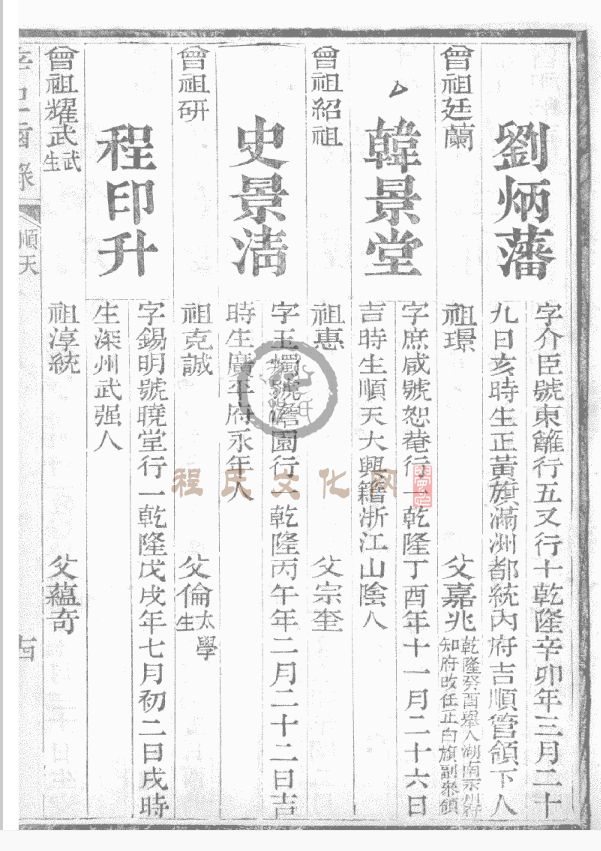 劉炳藩
字介臣號東籬行五又行十乾隆辛卯年三月二十
九日亥時生正黃旗滿洲都統內府吉順管領下人
曾祖廷蘭
祖璟
父嘉兆
乾隆癸酉舉人湖南永州府
知府改任正白旗副叅領
韓景堂
字庶咸號恕菴行一乾隆丁酉年十一月二十六日
吉時生順天大興籍浙江山陰人
曾祖紹祖
祖惠
父宗奎
史景淸
字玉燭號澹園行一乾隆丙午年二月二十二日吉
時生廣平府永年人
曾祖研
祖克誠
父倫太學生
程印升
字錫明號曉堂行一乾隆戊戌年七月初二日戌時
生深州武强人
曾祖耀武武生
祖淳統
父蘊奇
順天
程氏文化网